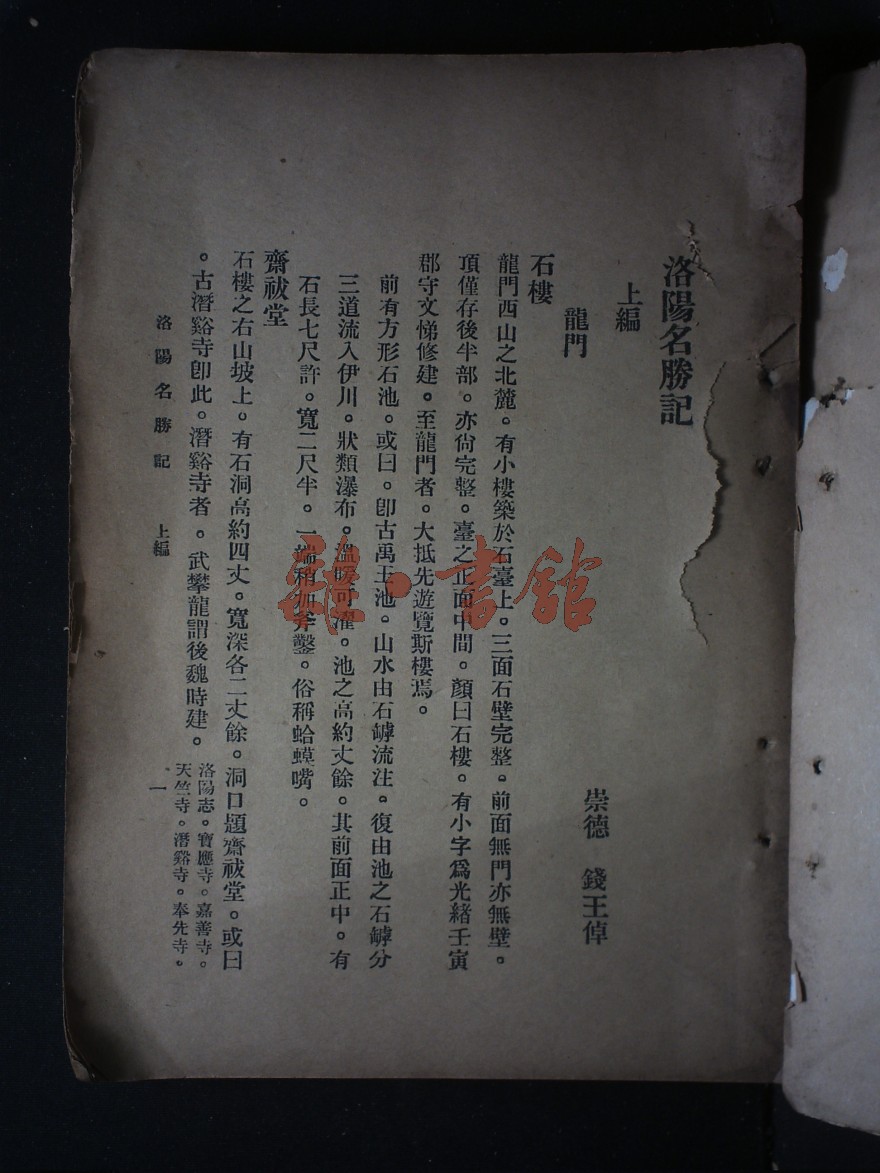 洛陽名勝記
上編
龍門
崇德　錢王倬
石樓
龍門西山之北麓。有小樓築於石臺上。三面石壁完整。前面無門亦無壁。
頂僅存後半部。亦尙完整。臺之正面中間。顏曰石樓。有小字爲光緒壬寅
郡守文悌修建。至龍門者。大抵先遊覽斯樓焉。
前有方形石池。或曰。卽古禹王池。山水由石罅流注。復由池之石罅分
三道流入伊川。狀類瀑布。溫暖可濯。池之高約丈餘。其前面正中。有
石長七尺許。寬二尺半。一端稍加斧鑿。俗稱蛤蟆嘴。
齋祓堂
石樓之右山坡上。有石洞高約四丈。寬深各二丈餘。洞口題齋祓堂。或曰
。古潛谿寺卽此。潛谿寺者。武攀龍謂後魏時建。
洛陽志。寶應寺。嘉善寺。
天竺寺。潛谿寺。奉先寺。
洛陽名勝記　上編
一
雒·書館